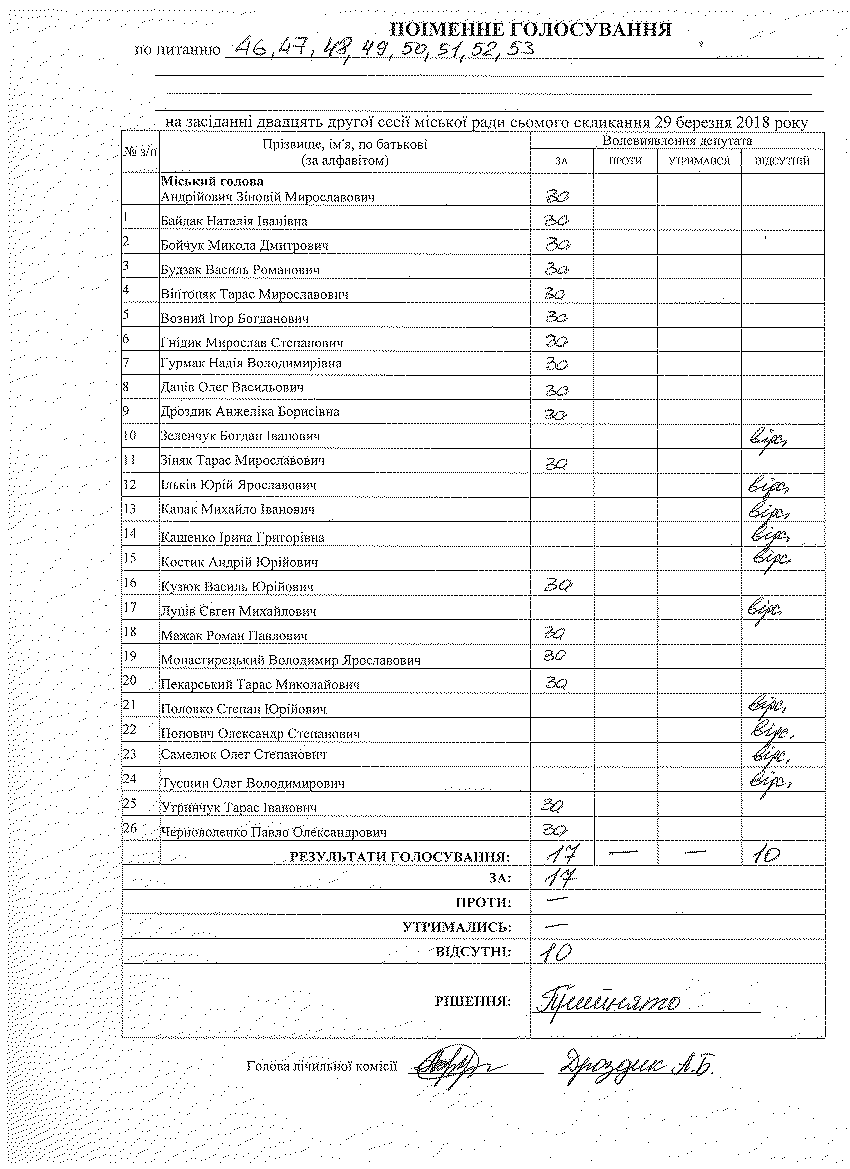 ПОІМЕННЕ ГОЛОСУВАННЯ
по питанню 46, 47, 48, 49, 50, 51, 52, 53
на засіданні двадцять другої сесії міської ради сьомого скликання 29 березня 2018 року
№ з/п Прізвище, ім'я, по батькові (за алфавітом) Волевиявлення депутата
ЗА ПРОТИ УТРИМАВСЯ ВІДСУТНІЙ
Міський голова
Андрійович Зіновій Мирославович за
1 Байдак Наталія Іванівна за
2 Бойчук Микола Дмитрович за
3 Будзак Василь Романович за
4 Вінтоняк Тарас Мирославович за
5 Возний Ігор Богданович за
6 Гнідик Мирослав Степанович за
7 Гурмак Надія Володимирівна за
8 Даців Олег Васильович за
9 Дроздик Анжеліка Борисівна за
10 Зеленчук Богдан Іванович відс.
11 Зіняк Тарас Мирославович за
12 Ільків Юрій Ярославович відс.
13 Капак Михайло Іванович відс.
14 Кашенко Ірина Григорівна відс.
15 Костик Андрій Юрійович відс.
16 Кузюк Василь Юрійович за
17 Луців Євген Михайлович відс.
18 Мажак Роман Павлович за
19 Монастирецький Володимир Ярославович за
20 Пекарський Тарас Миколайович за
21 Половко Степан Юрійович відс.
22 Попович Олександр Степанович відс.
23 Самелюк Олег Степанович відс.
24 Туспин Олег Володимирович відс.
25 Угринчук Тарас Іванович за
26 Черноволенко Павло Олександрович за
РЕЗУЛЬТАТИ ГОЛОСУВАННЯ: 17 — — 10
ЗА: 17
ПРОТИ: —
УТРИМАЛИСЬ: —
ВІДСУТНІ: 10
РІШЕННЯ: Прийнято
Голова лічильної комісії Дроздик А.Б.